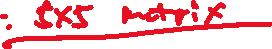 : 5x5 matrix